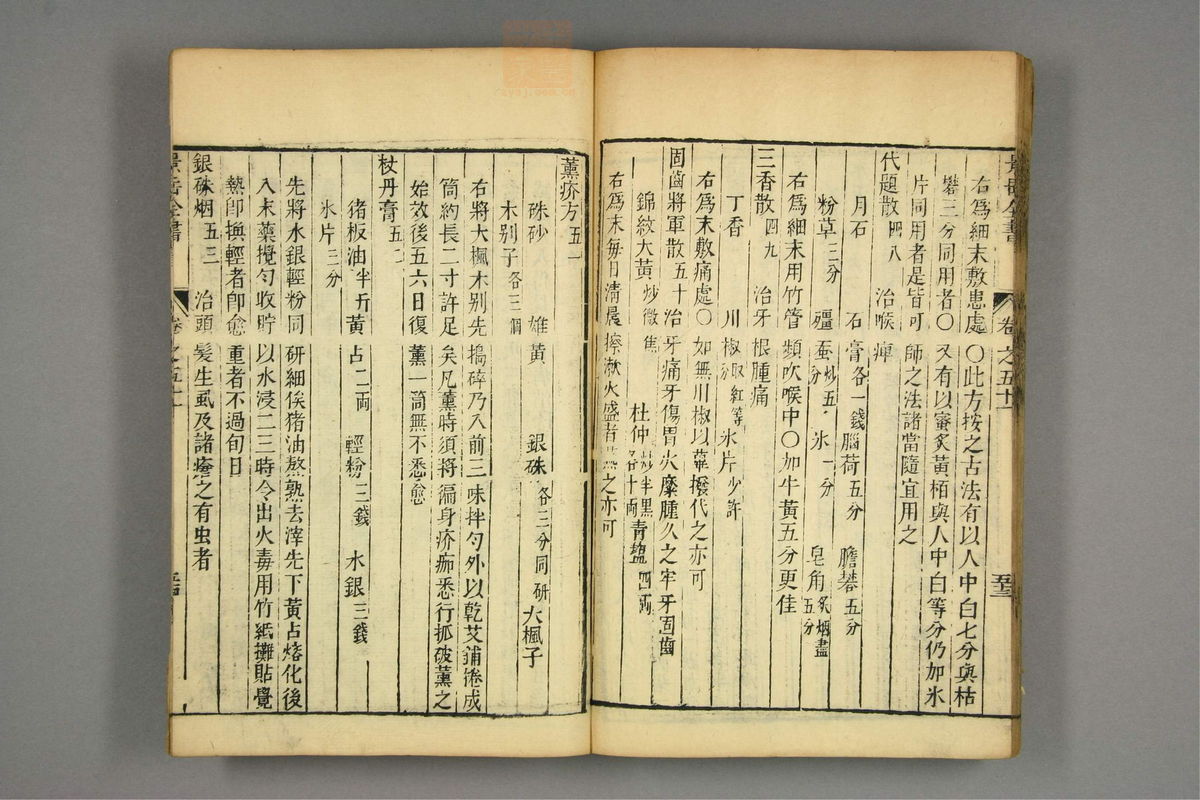 右爲細末敷患處〇此方按之古法有以人中白七分與枯
礬三分同用者〇又有以蜜炙黃栢與人中白等分仍加氷
片同用者是皆可師之法諸當隨宜用之
代題散四八　治喉痺
月石　石膏各一錢　腦荷五分　膽礬五分
粉草三分　殭蚕炒五分　氷一分　皂角炙烟盡五分
右爲細末用竹管頻吹喉中〇加牛黃五分更佳
三香散四九　治牙根腫痛
丁香　川椒取紅等分　氷片少許
右爲末敷痛處〇如無川椒以蓽撥代之亦可
固齒將軍散五十　治牙痛牙傷胃火糜腫久之牢牙固齒
錦紋大黃炒微焦　杜仲炒半黑各十兩　青鹽四兩
右爲末每日清晨擦漱火盛者 之亦可
景岳全書　卷之五十一　五三
薰疥方五一
硃砂　雄黃　銀硃各三分同研　大楓子
木别子各三個
右將大楓木别先搗碎乃入前三味拌勻外以乾艾鋪捲成
筒約長二寸許足矣凡薰時須將徧身疥痂悉行抓破薰之
始效後五六日復薰一筒無不悉愈
杖丹膏五二
猪板油半斤　黃占二兩　輕粉三錢　水銀三錢
氷片三分
先將水銀輕粉同研細俟猪油熬熟去滓先下黃占熔化後
入末藥攪勻收貯以水浸二三時令出火毒用竹紙攤貼覺
熱卽換輕者卽愈重者不過旬日
銀硃烟五三　治頭髮生虱及諸瘡之有虫者
景岳全書　卷之五十一　五四